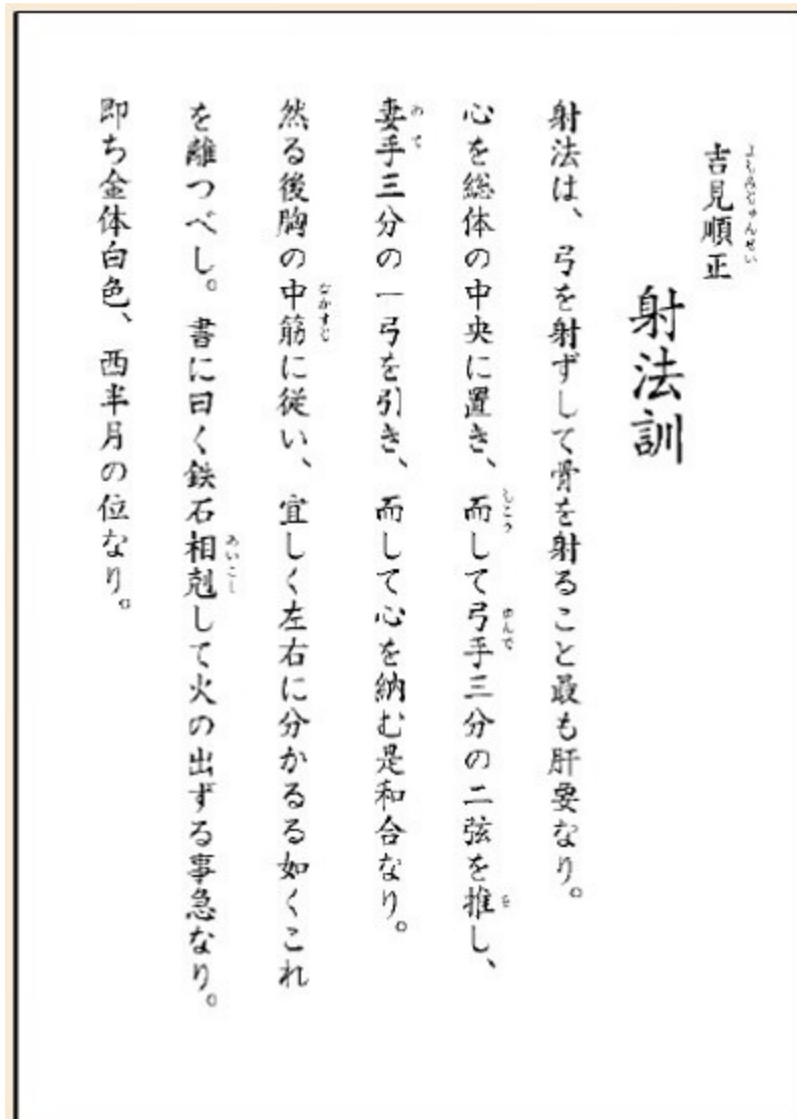 吉見順正
よしみじゅんせい
射法訓
射法は、弓を射ずして骨を射ること最も肝要なり。
心を総体の中央に置き、而して弓手三分の二弦を推し、
しこう
ゆんで
を
妻手三分の一弓を引き、而して心を納む是和合なり。
めて
然る後胸の中筋に従い、宜しく左右に分かるる如くこれ
なかすじ
を離つべし。書に曰く鉄石相剋して火の出ずる事急なり。
あいこし
即ち金体白色、西半月の位なり。